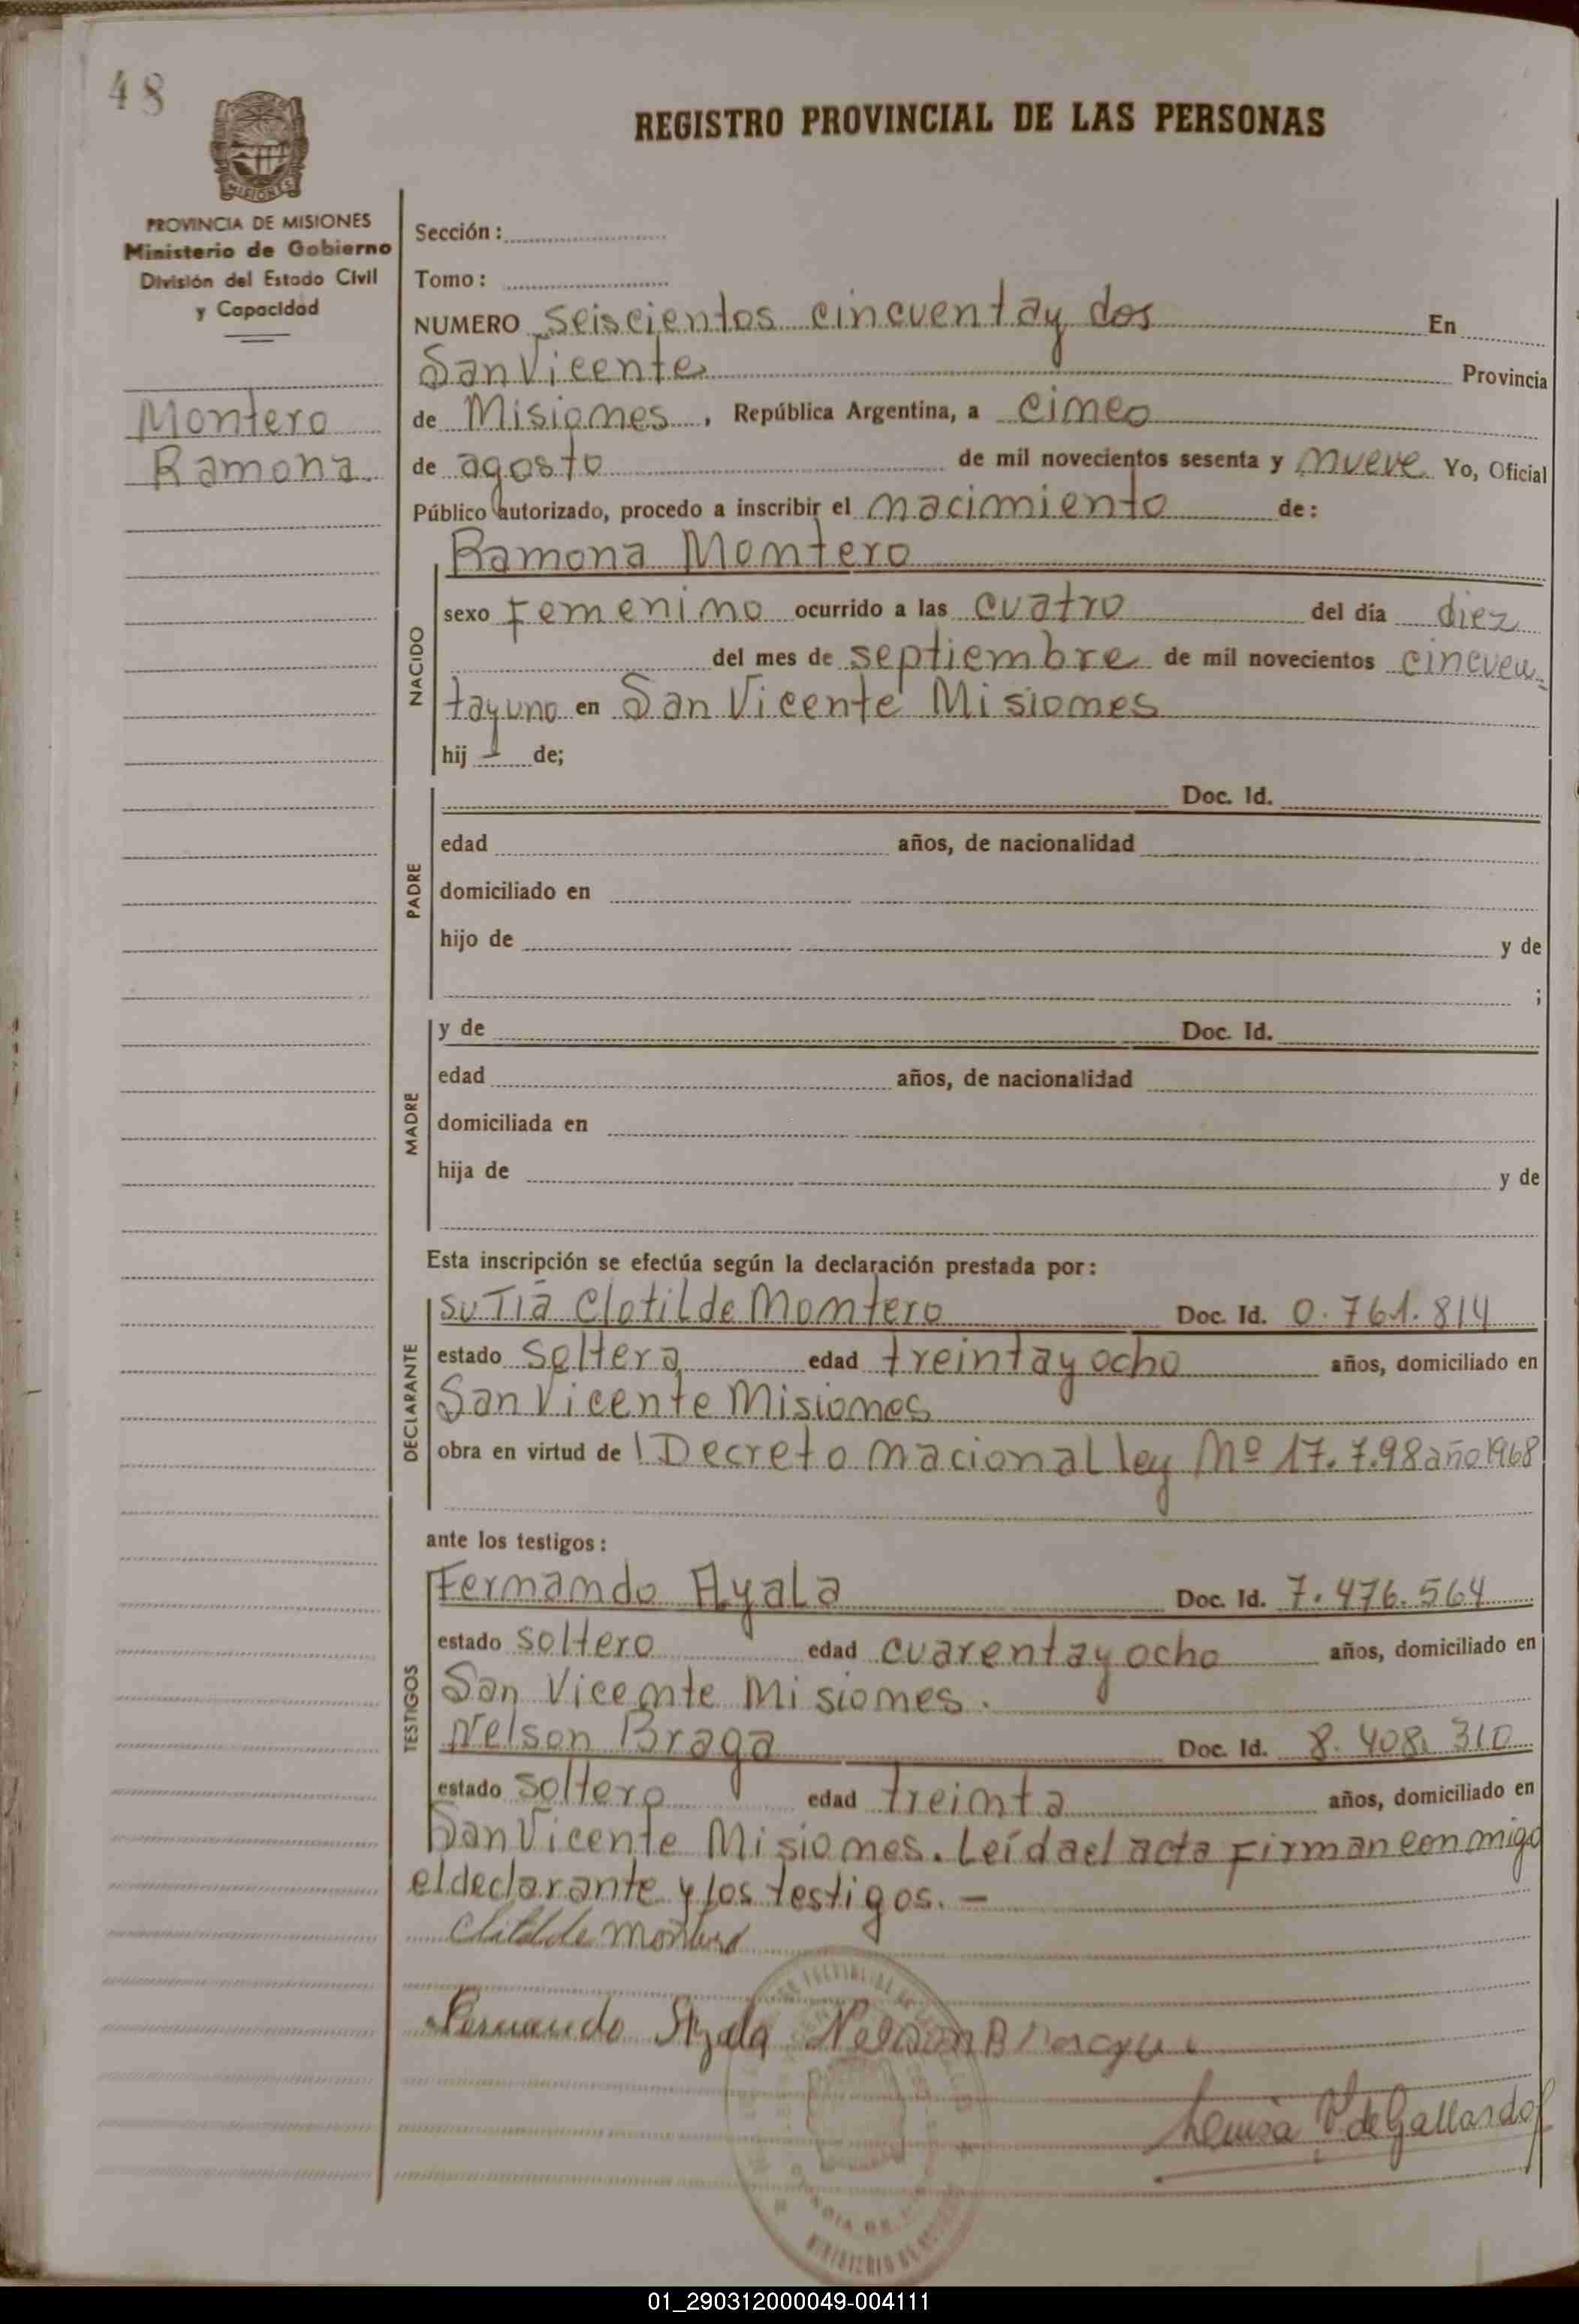 48
REGISTRO PROVINCIAL DE LAS PERSONAS
MISIONES
PROVINCIA DE MISIONES
Ministerio de Gobierno
División del Estado Civil
y Capacidad
Montero
Ramona
Sección:
Tomo:
NUMERO seiscientos cincuentay dos En
San Vicente Provincia
de Misiones, República Argentina, a cinco
de agosto de mil novecientos sesenta y nueve Yo, Oficial
Público autorizado, procedo a inscribir el nacimiento de:
Ramona Montero
NACIDO
sexo Femenino ocurrido a las cuatro del día diez
del mes de septiembre de mil novecientos cincuen
tayuno en San Vicente Misiones
hij - de;
PADRE
Doc. Id.
edad años, de nacionalidad
domiciliado en
hijo de y de
;
MADRE
y de Doc. Id.
edad años, de nacionalidad
domiciliada en
hija de y de
Esta inscripción se efectúa según la declaración prestada por:
DECLARANTE
su Tía Clotilde Montero Doc. Id. 0.761.814
estado soltera edad treintay ocho años, domiciliado en
San Vicente Misiones
obra en virtud de Decreto nacional ley Nº 17.7.98 año 1968
ante los testigos:
TESTIGOS
Fernando Ayala Doc. Id. 7.476.564
estado soltero edad cuarentay ocho años, domiciliado en
San Vicente Misiones.
Nelson Braga Doc. Id. 8.408.310
estado soltero edad treinta años, domiciliado en
San Vicente Misiones. Leída el acta Firman conmigo
el declarante y los testigos. —
Clotilde Montero
Fernando Ayala Nelson Braga
de Gallardo
01_290312000049-004111